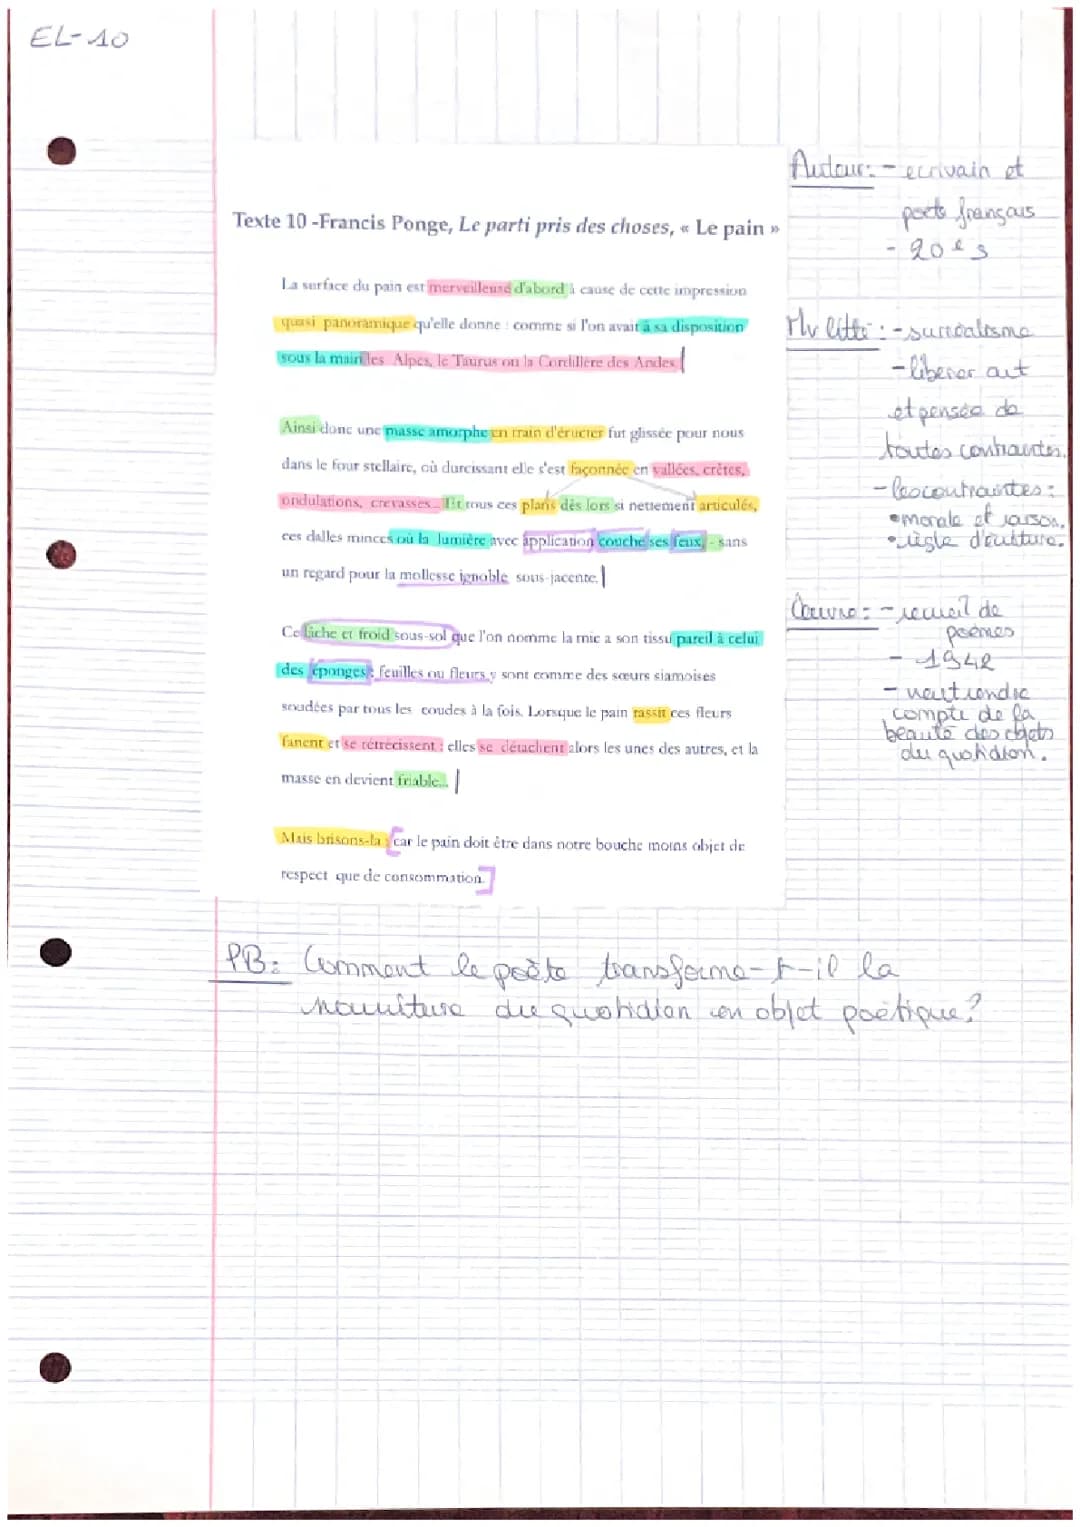 EL-10
Texte 10 -Francis Ponge, Le parti pris des choses, « Le pain »
La surface du pain est merveilleuse d'abord à cause de cette impression
quasi panoramique qu'elle donne : comme si l'on avait à sa disposition
sous la main les Alpes, le Taurus ou la Cordillère des Andes.
Ainsi donc une masse amorphe en train d'éructer fut glissée pour nous
dans le four stellaire, où durcissant elle s'est façonnée en vallées, crêtes,
ondulations, crevasses... Et tous ces plans dès lors si nettement articulés,
ces dalles minces où la lumière avec application couche ses feux, - sans
un regard pour la mollesse ignoble sous-jacente.
Ce lâche et froid sous-sol que l'on nomme la mie a son tissu pareil à celui
des éponges : feuilles ou fleurs y sont comme des sœurs siamoises
soudées par tous les coudes à la fois. Lorsque le pain rassit ces fleurs
fanent et se rétrécissent : elles se détachent alors les unes des autres, et la
masse en devient friable...
Mais brisons-la : car le pain doit être dans notre bouche moins objet de
respect que de consommation.
Auteur: - ecrivain et
poete français
- 20e s
Mv litté : - surréalisme
- libérer art
et pensée de
toutes contraintes.
- les contraintes :
• morale et raison.
• règle d'écriture.
Oeuvre : - recueil de
poèmes
- 1942
- veut rendre
compte de la
beauté des objets
du quotidien.
PB: Comment le poète transforme-t-il la
nourriture du quotidien en objet poétique?